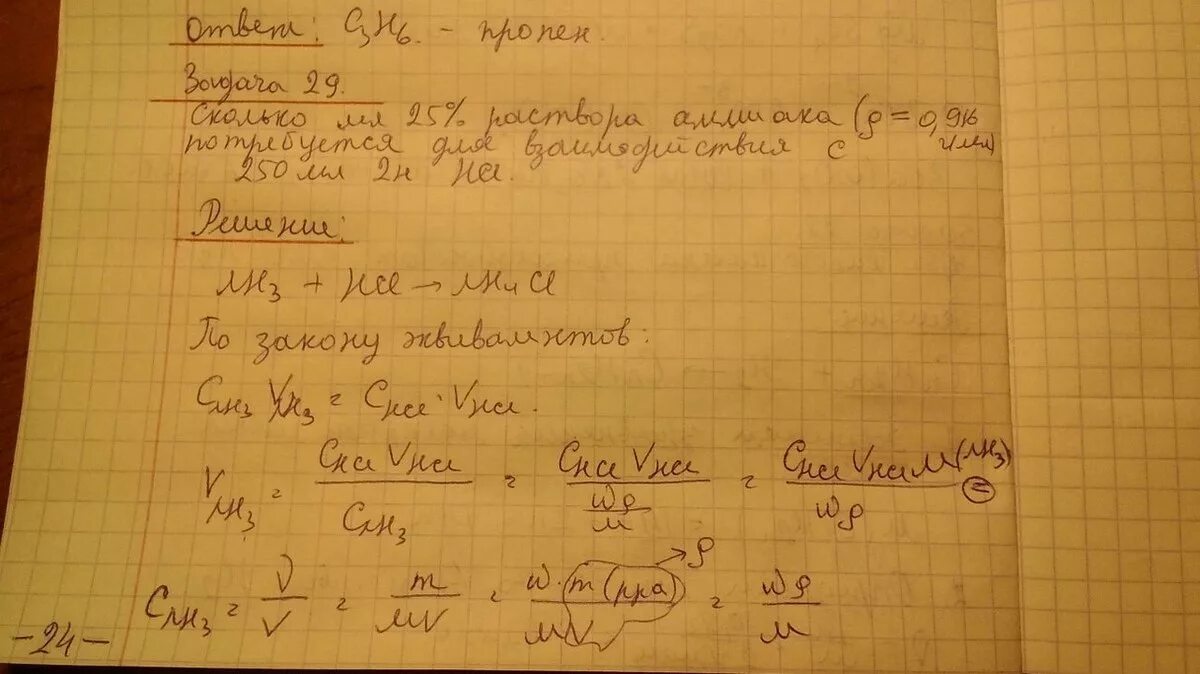 Ответ: C3H6. - пропен.
Задача 29.
Сколько мл 25% раствора аммиака (ρ = 0,916 г/мл)
потребуется для взаимодействия с
250 мл 2н HCl.
Решение:
NH3 + HCl → NH4Cl
По закону эквивалентов:
C_NH3 V_NH3 = C_HCl · V_HCl.
V_NH3 = C_HCl V_HCl / C_NH3 = C_HCl V_HCl / (wρ/M) = C_HCl V_HCl M(NH3) / wρ =
C_NH3 = ν/V = m/MV = w·m(рра)/MV = wρ/M → ρ
-24-